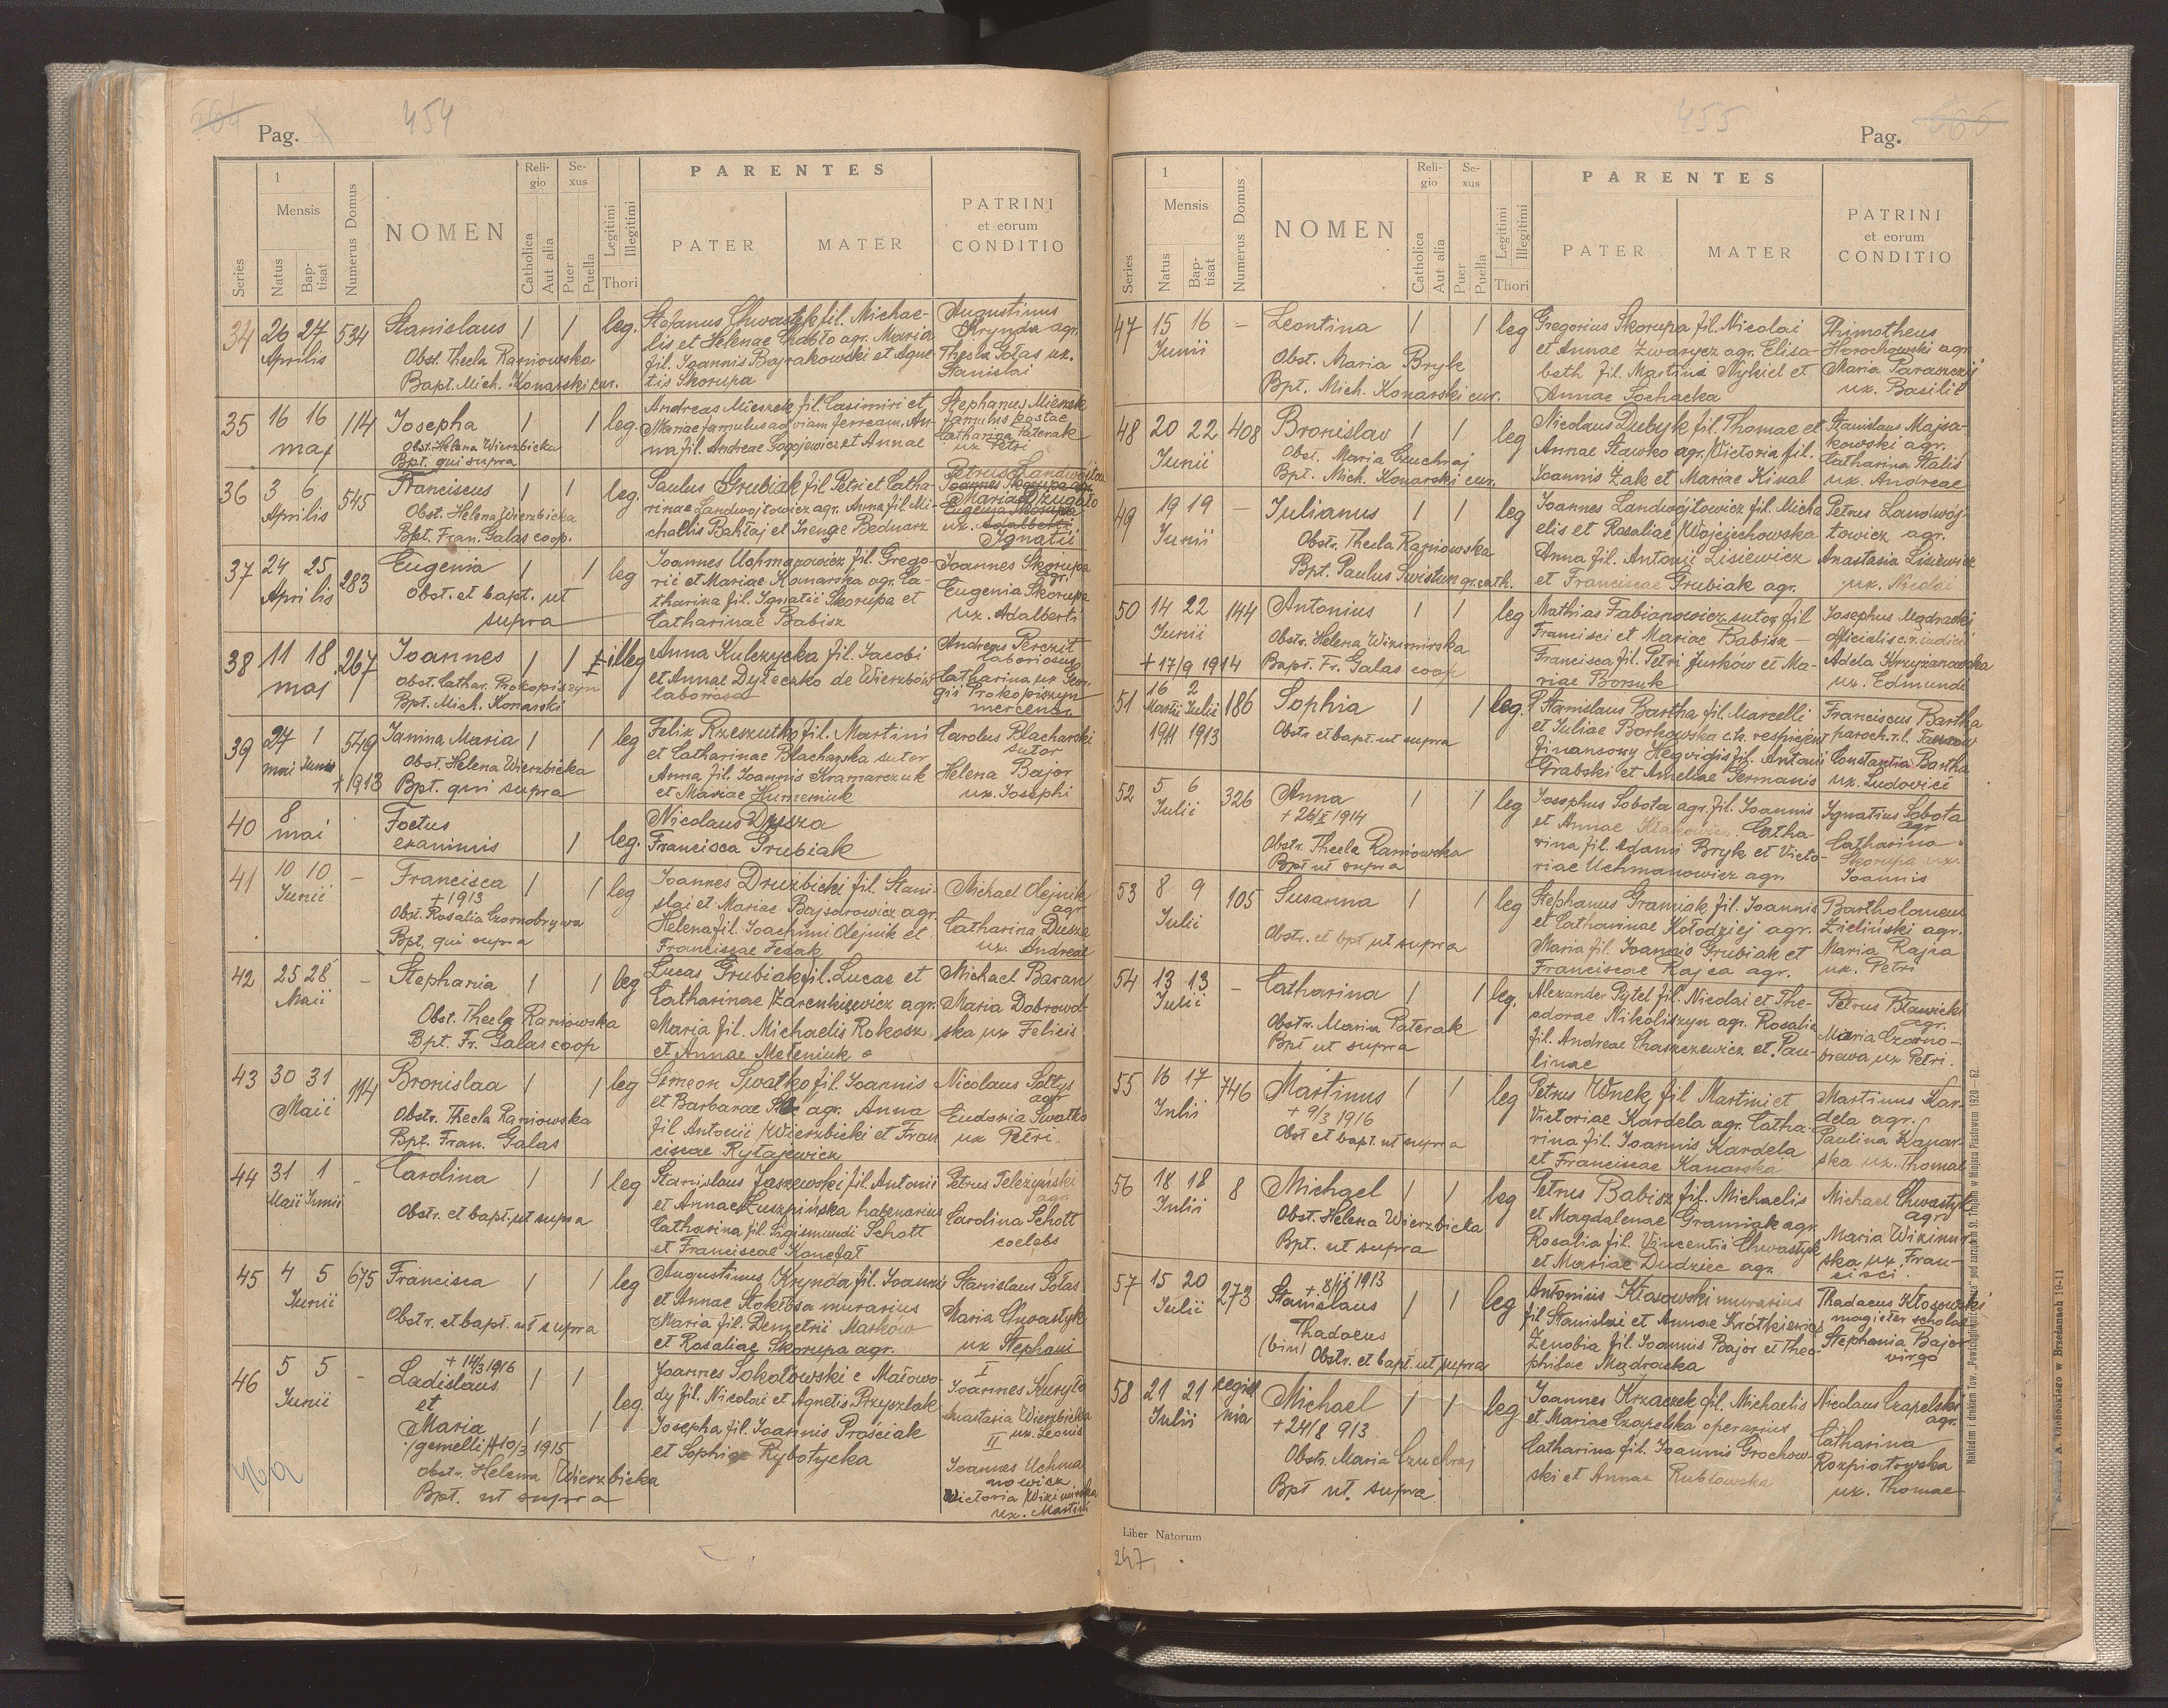 504
Pag. 454
1
Mensis
Series
Natus
Baptisat
Numerus Domus
NOMEN
Religio
Catholica
Aut alia
Sexus
Puer
Puella
Legitimi
Illegitimi
Thori
PARENTES
PATER
MATER
PATRINI
et eorum
CONDITIO
34 26 27 534 Stanislaus 1 1 leg. Stefanus Chwastyk fil. Michae- Augustinus
Aprilis lis et Helenae Chabło agr. Maria Krynda agr.
Obst. Thecla Raniowska fil. Joannis Bajrakowski et Agne- Thecla Gołas ux.
Bapt. Mich. Konarski cur. tis Skorupa Stanislai
35 16 16 114 Josepha 1 1 leg. Andreas Mieszek fil. Casimiri et Stephanus Mieszek
maj Mariae famulus ad viam ferream. An- famulus postae
Obst. Helena Wierzbicka na fil. Andreae Gogojewicz et Annae Catharina Paterak
Bpt. qui supra ux Petri
36 3 6 545 Franciscus 1 1 leg. Paulus Grubiak fil Petri et Catha- Petrus Landwójtow
Aprilis Joannes Skorupa agr.
Obst. Helena Wierzbicka rinae Landwojtowicz agr. Anna fil. Mi- Maria
Bpt. Fran. Galas coop. chaelis Bahłaj et Irenge Bednarz Eugenia Skorupa
ux. Adalberti
Ignatii
37 24 25 283 Eugenia 1 1 leg Joannes Uchmanowicz fil. Grego- Joannes Skorupa
Aprilis rii et Mariae Konarska agr. Ca- agr.
Obst. et bapt. ut tharina fil. Ignatii Skorupa et Eugenia Skorupa
supra Catharinae Babisz ux. Adalberti
38 11 18 267 Joannes 1 1 illeg Anna Kulczycka fil. Jacobi Andreas Perczit
maj et Annae Dyteczko de Wierzbów laboriosus
Obst. Cathar. Prokopiszyn laboriosa Catharina ux Geor-
Bpt. Mich. Konarski gii Prokopiszyn
mercenar.
39 27 1 549 Janina Maria 1 1 leg Felix Rzeszutko fil. Martini Carolus Blacharski
maii Junii et Catharinae Blacharska sutor sutor
Obst. Helena Wierzbicka Anna fil. Joannis Kramarczuk Helena Bajor
+1913 Bpt. qui supra et Mariae Humeniuk ux. Josephi
40 8 Foetus Nicolaus Dusza
mai exanimis 1 leg. Francisca Grubiak
41 10 10 - Francisca 1 1 leg Joannes Druzbicki fil. Stani- Michael Olejnik
Junii +1913 slai et Mariae Bajsarowicz agr. agr
Obst. Rosalia Czornobrywa Helena fil. Joachimi Olejnik et Catharina Dusza
Bpt. qui supra Franciscae Fedak ux. Andreae
42 25 28 - Stephania 1 1 leg Lucas Grubiak fil. Lucae et Michael Baran
Maii Catharinae Zarenkiewicz agr. Maria Dobrowol-
Obst. Thecla Raniowska Maria fil. Michaelis Rokosz ska ux Felicis
Bpt. Fr. Galas coop et Annae Meleniuk
43 30 31 114 Bronislaa 1 1 leg Simeon Swatko fil. Joannis Nicolaus Sołtys
Maii et Barbarae agr. Anna agr
Obstr. Thecla Raniowska fil Antonii Wierzbicki et Fran Eudoxia Swatko
Bpt. Fran. Galas ciscae Rytajewicz ux Petri
44 31 1 - Carolina 1 1 leg Stanislaus Jaszewski fil. Antonii Petrus Teleżyński
Maii Junii et Annae Łuszpińska habenarius agr.
Obstr. et bapt. ut supra Catharina fil. Sigismundi Schott Carolina Schott
et Franciscae Konefał coelebs
45 4 5 675 Francisca 1 1 leg Augustinus Krynda fil. Joannis Stanislaus Gołas
Junii et Annae Stokłosa murarius Maria Chwastyk
Obstr. et bapt. ut supra Maria fil. Demetrii Marków ux Stephani
et Rosaliae Skorupa agr.
46 5 5 - + 14/3 1916
Junii Ladislaus 1 1 Joannes Sokołowski e Małowo- I
et leg. dy fil. Nicolai et Agnetis Przyszlak Joannes Kuryło
Maria 1 1 Josepha fil. Joannis Prościak Anastasia Wierzbicka
/gemelli/ +10/3 1915 et Sophiae Rybotycka ux. Leonis
46a Obstr. Helena Wierzbicka II
Bpt. ut supra Joannes Uchma
nowicz
Victoria Wiximirska
ux. Martini
455 Pag.
1
Mensis
Series
Natus
Baptisat
Numerus Domus
NOMEN
Religio
Catholica
Aut alia
Sexus
Puer
Puella
Legitimi
Illegitimi
Thori
PARENTES
PATER
MATER
PATRINI
et eorum
CONDITIO
47 15 16 - Leontina 1 1 leg Gregorius Skorupa fil. Nicolai Thimotheus
Junii et Annae Zwarycz agr. Elisa- Horochowski agr.
Obst. Maria Bryk beth fil. Martini Nykiel et Maria Paraszczij
Bpt. Mich. Konarski cur. Annae Sochacka ux. Basilii
48 20 22 408 Bronislav 1 1 leg Nicolaus Dubyk fil. Thomae et Stanislaus Majsa-
Junii Obst. Maria Czuchraj Annae Sławko agr. Victoria fil. kowski agr.
Bpt. Mich. Konarski cur. Joannis Zak et Mariae Kinal Catharina Stalis
ux. Andreae
49 19 19 - Julianus 1 1 leg Joannes Landwójtowicz fil. Micha Petrus Landwój-
Junii elis et Rosaliae Wojciechowska towicz agr.
Obstr. Thecla Raniowska Anna fil. Antonii Lisiewicz Anastasia Lisiewicz
Bpt. Paulus Swistun gr. cath. et Franciscae Grubiak agr. ux. Nicolai
50 14 22 144 Antonius 1 1 leg Mathias Fabianowicz sutor fil Josephus Mądracki
Junii Obstr. Helena Wiximirska Francisci et Mariae Babisz officialis c.r. iudicii
+17/9 1914 Bapt. Fr. Galas coop Francisca fil. Petri Jurków et Ma- Adela Krzyżanowska
riae Borsuk ux. Edmundi
51 16 2 186 Sophia 1 1 leg. Stanislaus Bartha fil. Marcelli Franciscus Bartha
Martii Julii et Juliae Borkowska c.k. respicjent paroch. r.l. Tarnów
1911 1913 Obstr et bapt. ut supra finansowy Hegvigis fil. Antonii Constantia Bartha
Grabski et Ameliae Germanis ux. Ludovici
52 5 6 326 Anna 1 1 leg Josephus Sobota agr. fil. Joannis Ignatius Sobota
Julii + 26/X 1914 et Annae Catha- agr
Obstr. Thecla Raniowska rina fil. Adami Bryk et Victo- Catharina
Bpt ut supra riae Uchmanowicz agr. Skorupa ux.
Joannis
53 8 9 105 Susanna 1 1 leg Stephanus Gramiak fil. Joannis Bartholomeus
Julii et Catharinae Kołodziej agr. Zieliński agr.
Obstr. et bpt ut supra Maria fil. Joannis Grubiak et Maria Rajca
Franciscae Rajca agr. ux. Petri
54 13 13 - Catharina 1 1 leg. Alexander Pytel fil. Nicolai et The- Petrus Bławicki
Julii odorae Nikoliszyn agr. Rosalia agr.
Obstr. Maria Paterak fil. Andreae Chaszczewicz et Pau- Maria Czorno-
Bpt ut supra linae brewa ux Petri.
55 16 17 746 Martinus 1 1 leg Petrus Wnek fil Martini et Martinus Kar-
Julii + 9/3 1916 Victoriae Kardela agr. Catha- dela agr.
Obst et bapt. ut supra rina fil. Joannis Kardela Paulina Kanar-
et Franciscae Kanarska ska ux. Thomae
56 18 18 8 Michael 1 1 leg Petrus Babisz fil. Michaelis Michael Chwastyk
Julii Obst. Helena Wierzbicka et Magdalenae Gramiak agr agr
Bpt. ut supra Rosalia fil. Vincentii Chwastyk Maria Wizimir
et Mariae Dudziec agr. ska ux. Fran-
cisci.
57 15 20 273 + 8/IX 1913
Julii Stanislaus 1 1 leg Antonius Kłosowski murarius Thadaeus Kłosowski
Thadaeus fil Stanislai et Annae Krótkiewicz magister scholae
(bin) Zenobia fil. Joannis Bajor et Theo- Stephania Bajor
Obstr. et bapt. ut supra philae Mądracka virgo
58 21 21 Michael 1 1 leg Joannes Krzaczek fil. Michaelis Nicolaus Czapelski
Julii + 24/8 913 et Mariae Czapelska operarius agr.
Obstr. Maria Czuchraj Catharina fil. Joannis Grochow- Catharina
Bpt ut. supra ski et Annae Rubłowska Rozpiatowska
ux. Thomae
Liber Natorum
247.